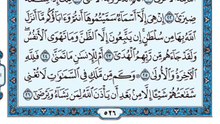 ضِيزَىٰٓ ٢٢ إِنْ هِيَ إِلَّآ أَسْمَآءٌ سَمَّيْتُمُوهَآ أَنتُمْ وَءَابَآؤُكُم مَّآ أَنزَلَ
ٱللَّهُ بِهَا مِن سُلْطَٰنٍ ۚ إِن يَتَّبِعُونَ إِلَّا ٱلظَّنَّ وَمَا تَهْوَى ٱلْأَنفُسُ ۖ
وَلَقَدْ جَآءَهُم مِّن رَّبِّهِمُ ٱلْهُدَىٰٓ ٢٣ أَمْ لِلْإِنسَٰنِ مَا تَمَنَّىٰ ٢٤ فَلِلَّهِ
ٱلْءَاخِرَةُ وَٱلْأُولَىٰ ٢٥ وَكَم مِّن مَّلَكٍ فِي ٱلسَّمَٰوَٰتِ لَا تُغْنِي
شَفَٰعَتُهُمْ شَيْـًٔا إِلَّا مِنۢ بَعْدِ أَن يَأْذَنَ ٱللَّهُ لِمَن يَشَآءُ وَيَرْضَىٰٓ ٢٦
٥٢٦